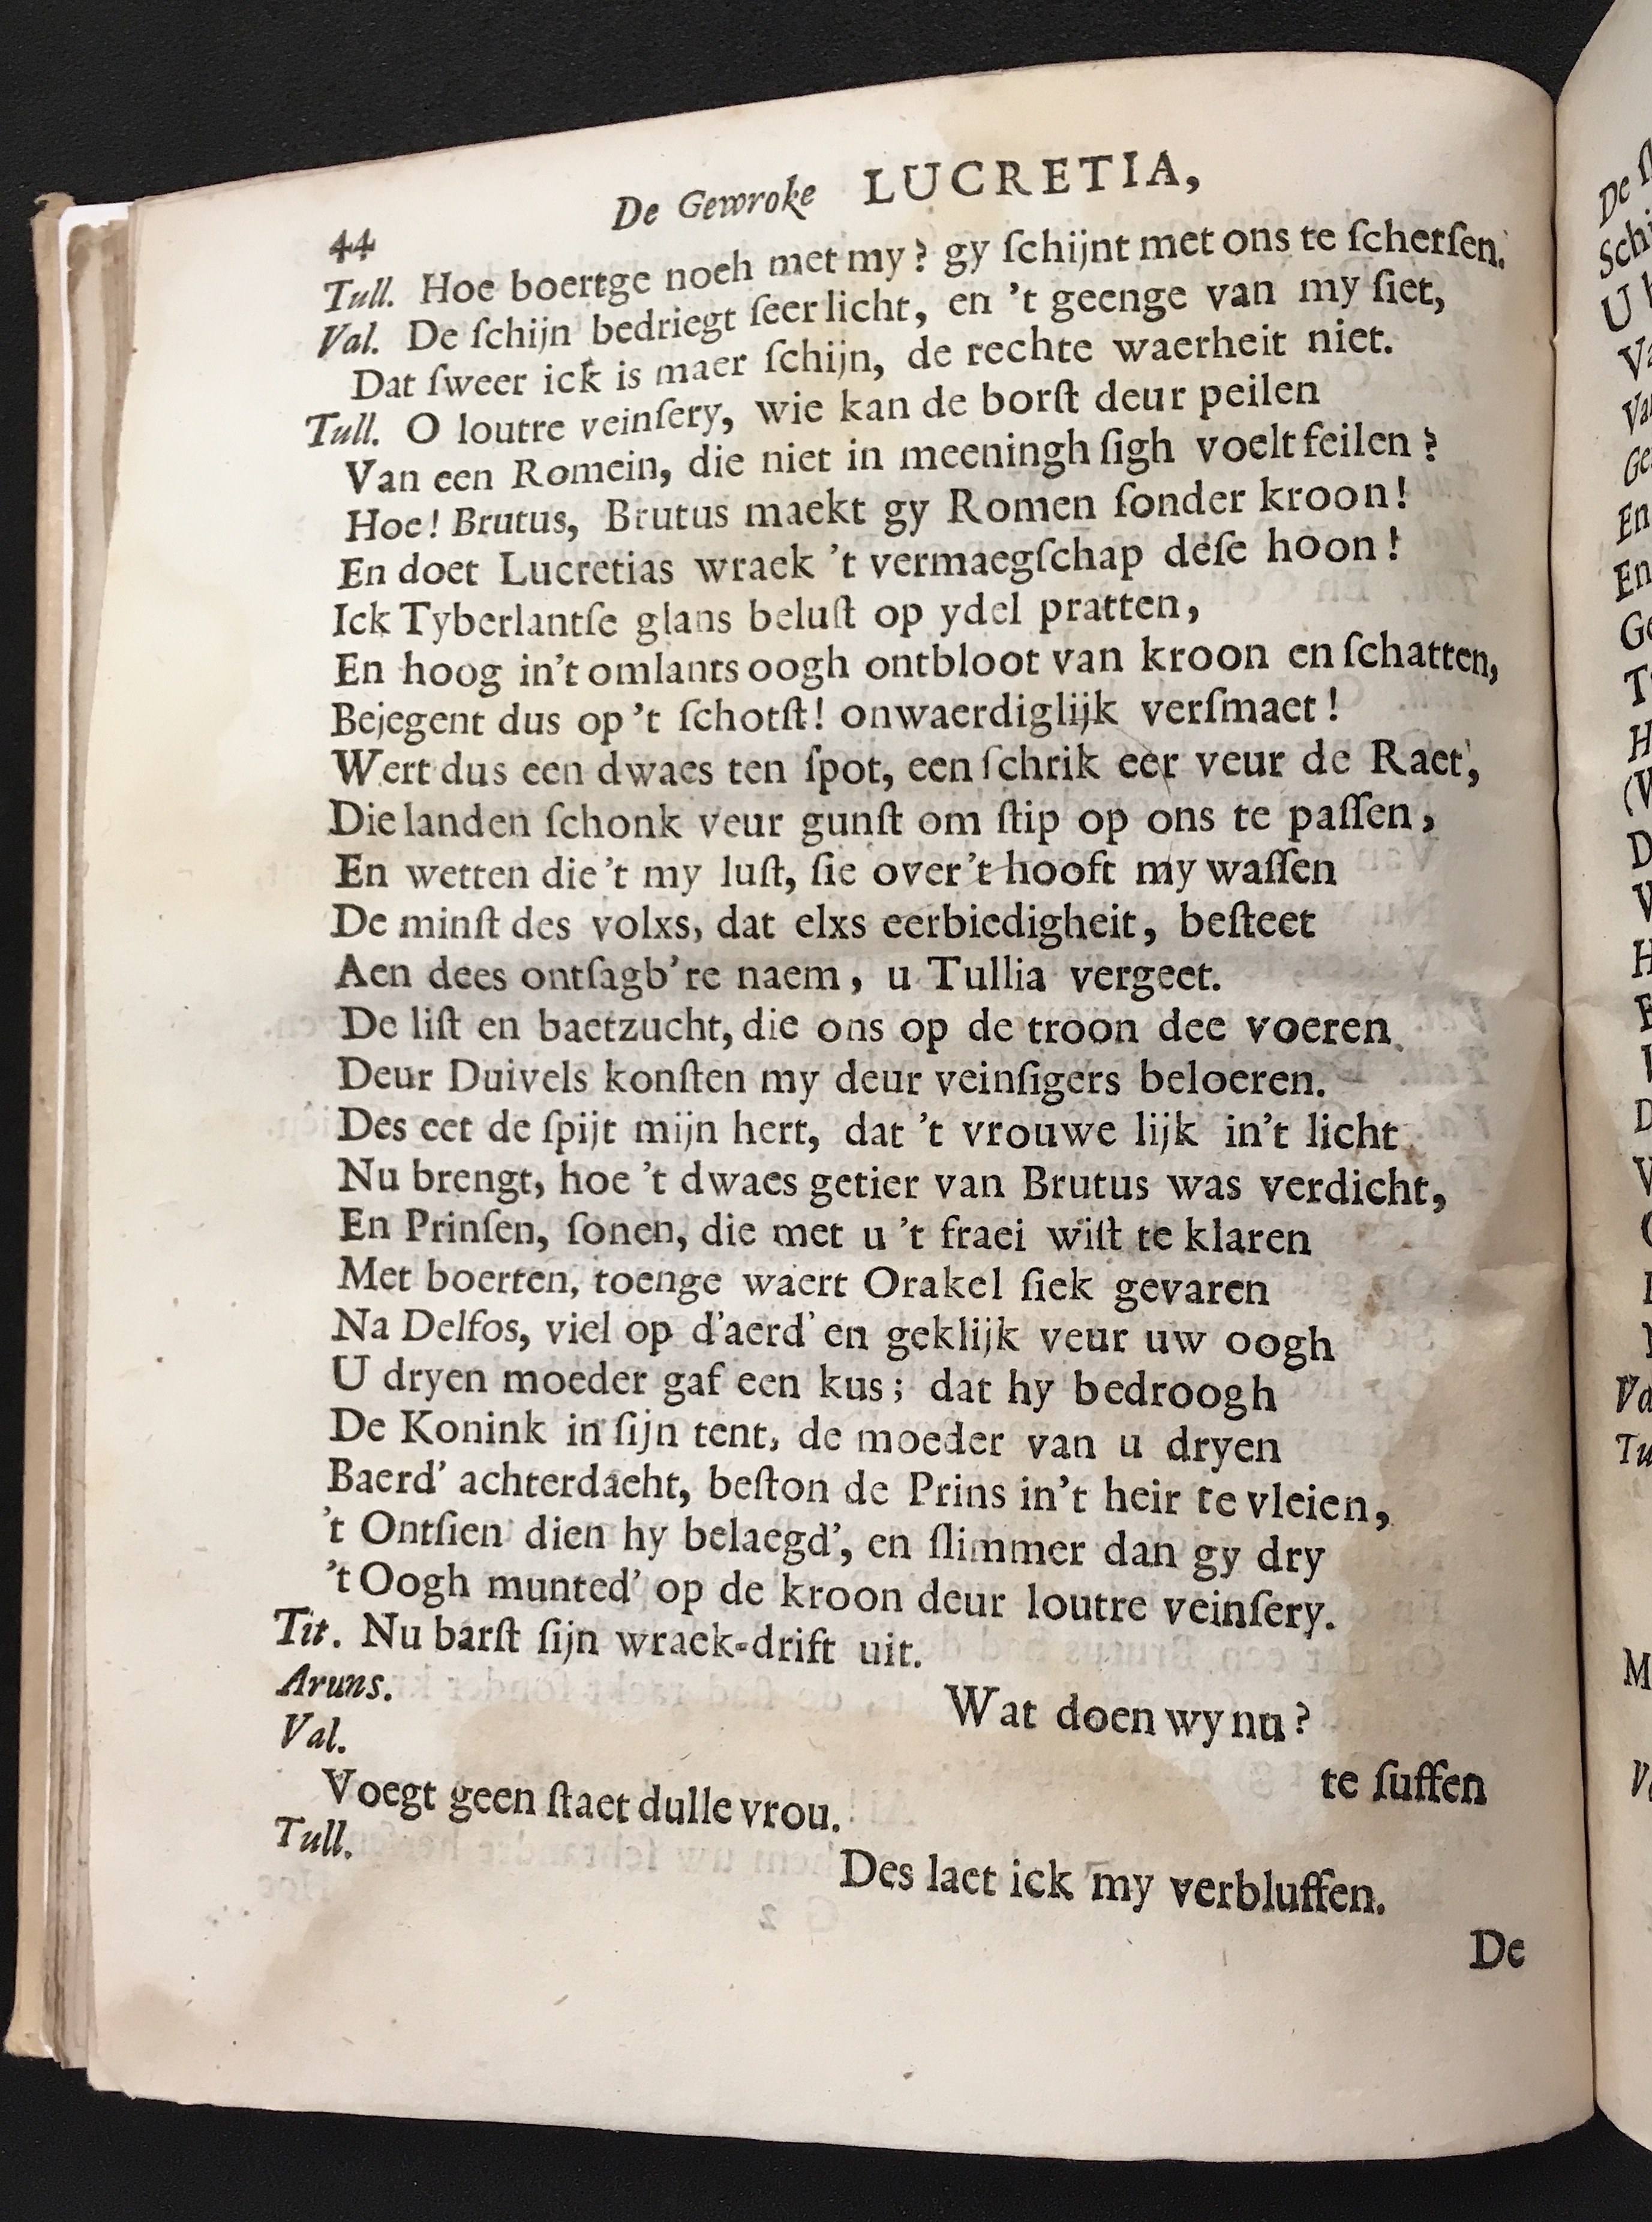 44 De Gewroke LUCRETIA,
Tull. Hoe boertge noch met my? gy ſchijnt met ons te ſcherſen.
Val. De ſchijn bedriegt ſeer licht, en 't geenge van my ſiet,
Dat ſweer ick is maer ſchijn, de rechte waerheit niet.
Tull. O loutre veinſery, wie kan de borſt deur peilen
Van een Romein, die niet in meeningh ſigh voelt feilen?
Hoe! Brutus, Brutus maekt gy Romen ſonder kroon!
En doet Lucretias wraek 't vermaegſchap deſe hoon!
Ick Tyberlantſe glans beluſt op ydel pratten,
En hoog in't omlants oogh ontbloot van kroon en ſchatten,
Bejegent dus op 't ſchotſt! onwaerdiglijk verſmaet!
Wert dus een dwaes ten ſpot, een ſchrik eer veur de Raet,
Die landen ſchonk veur gunſt om ſtip op ons te paſſen,
En wetten die 't my luſt, ſie over 't hooft my waſſen
De minſt des volxs, dat elxs eerbiedigheit, beſteet
Aen dees ontſagb're naem, u Tullia vergeet.
De liſt en baetzucht, die ons op de troon dee voeren
Deur Duivels konſten my deur veinſigers beloeren.
Des eet de ſpijt mijn hert, dat 't vrouwe lijk in't licht
Nu brengt, hoe 't dwaes getier van Brutus was verdicht,
En Prinſen, ſonen, die met u 't fraei wiſt te klaren
Met boerten, toenge waert Orakel ſiek gevaren
Na Delfos, viel op d'aerd' en geklijk veur uw oogh
U dryen moeder gaf een kus; dat hy bedroogh
De Konink in ſijn tent, de moeder van u dryen
Baerd' achterdacht, beſton de Prins in't heir te vleien,
't Ontſien dien hy belaegd', en ſlimmer dan gy dry
't Oogh munted' op de kroon deur loutre veinſery.
Tit. Nu barſt ſijn wraek-drift uit.
Aruns. Wat doen wy nu?
Val. te ſuffen
Voegt geen ſtaet dulle vrou.
Tull. Des laet ick my verbluffen.
De